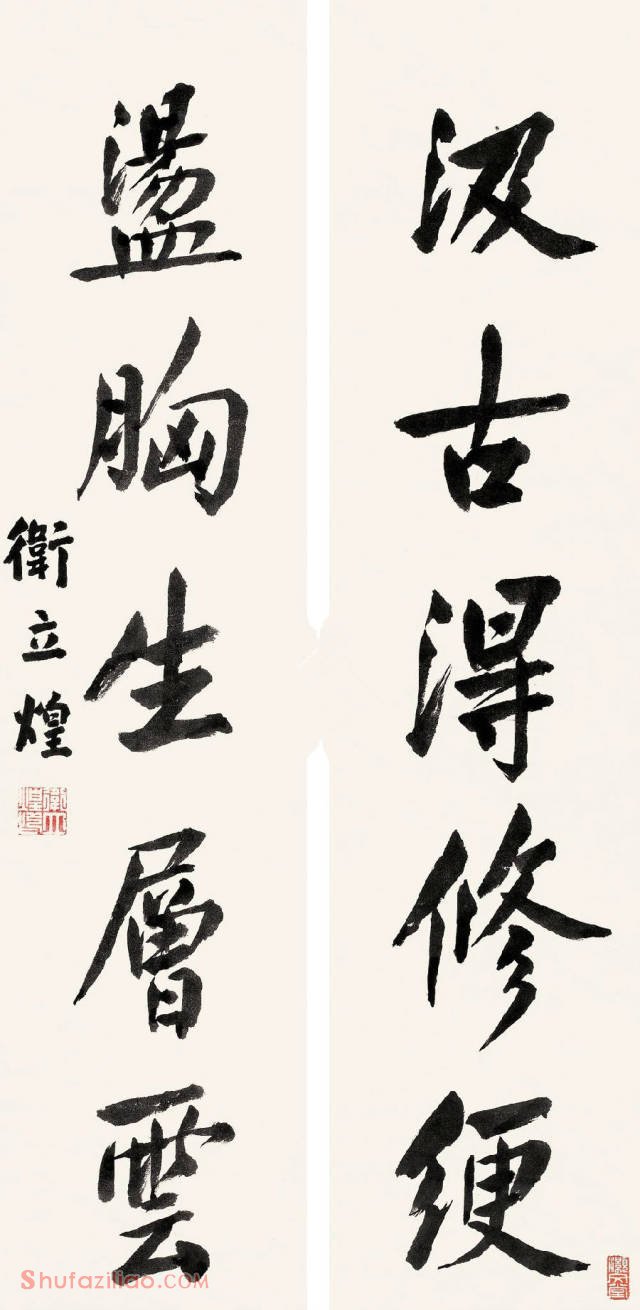 汲古得修綆
盪胸生層雲
衛立煌
Shufaziliao.com